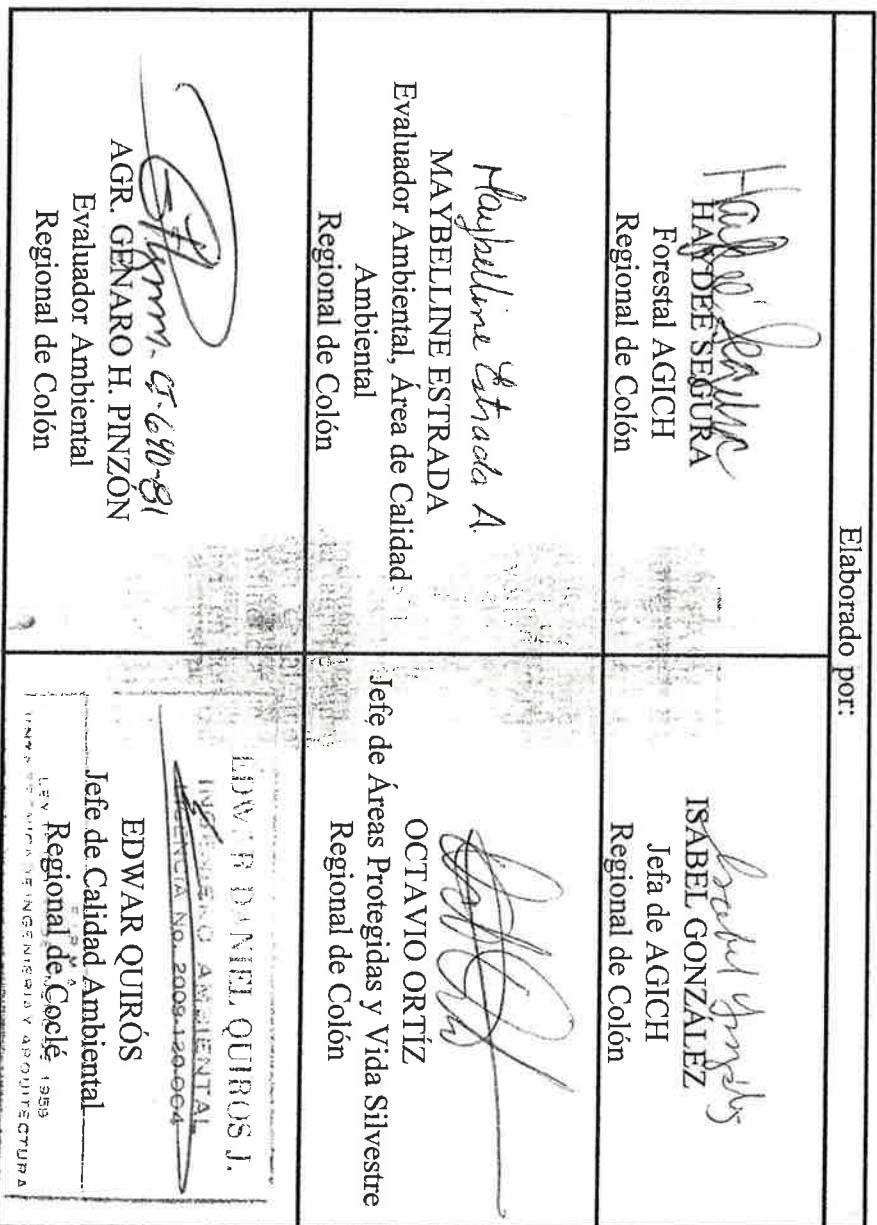 Elaborado por:
Haydeé Segura
HAYDEE SEGURA
Forestal AGICH
Regional de Colón
Isabel González
ISABEL GONZÁLEZ
Jefa de AGICH
Regional de Colón
Maybelline Estrada A.
MAYBELLINE ESTRADA
Evaluador Ambiental, Área de Calidad
Ambiental
Regional de Colón
OCTAVIO ORTÍZ
Jefe de Áreas Protegidas y Vida Silvestre
Regional de Colón
AGR. GENARO H. PINZÓN
Evaluador Ambiental
Regional de Colón
EDWAR DANIEL QUIROS J.
INGENIERO AMBIENTAL
LICENCIA No. 2009-120-004
EDWAR QUIRÓS
Jefe de Calidad Ambiental
FIRMA
Regional de Coclé
1959
DE INGENIERIA Y ARQUITECTURA